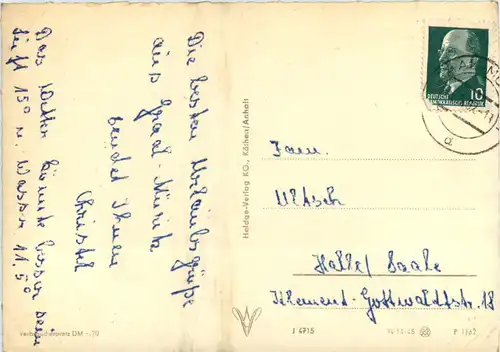 Die besten Urlaubsgrüße
aus Graal-Müritz
sendet Ihnen
Christel
Das Wetter könnte besser sein
Luft 15° u. Wasser 11,5°
Verbraucherpreis DM -,20
Heldge-Verlag KG., Köthen/Anhalt
J 4715
IV-14-45
P 1/62
DEUTSCHE
DEMOKRATISCHE REPUBLIK
10
a
Fam.
Halle/Saale
Klement-Gottwaldtstr. 18